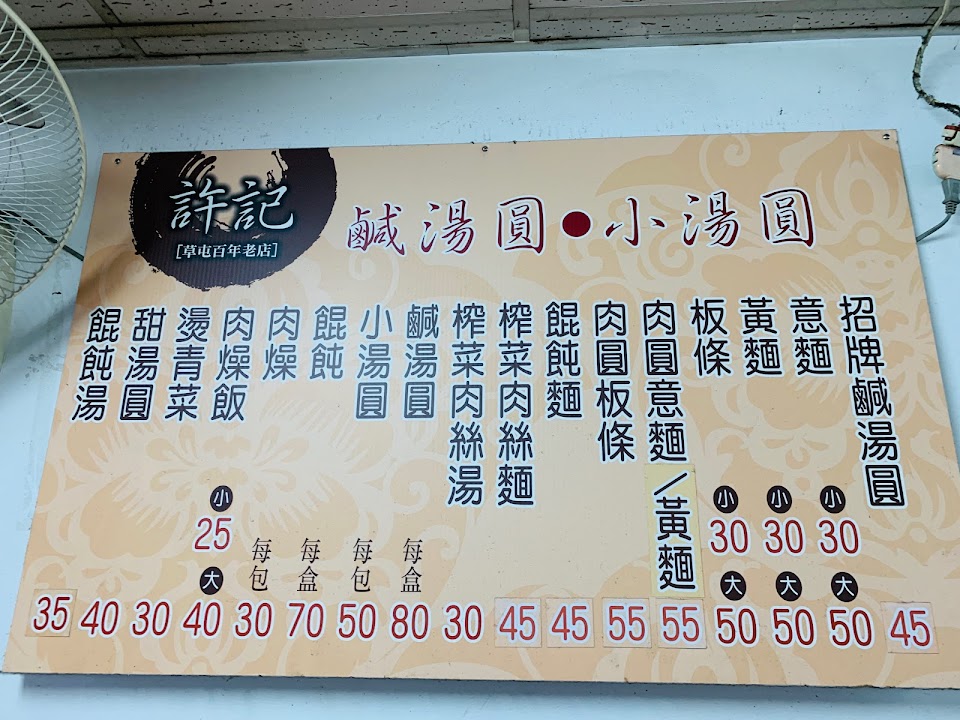 許記
[草屯百年老店]
鹹湯圓●小湯圓
招牌鹹湯圓 45
意麵 小 30 大 50
黃麵 小 30 大 50
板條 小 30 大 50
肉圓意麵/黃麵 55
肉圓板條 55
餛飩麵 45
榨菜肉絲麵 45
榨菜肉絲湯 30
鹹湯圓 每盒 80
小湯圓 每包 50
餛飩 每盒 70
肉燥 每包 30
肉燥飯 小 25 大 40
燙青菜 30
甜湯圓 40
餛飩湯 35